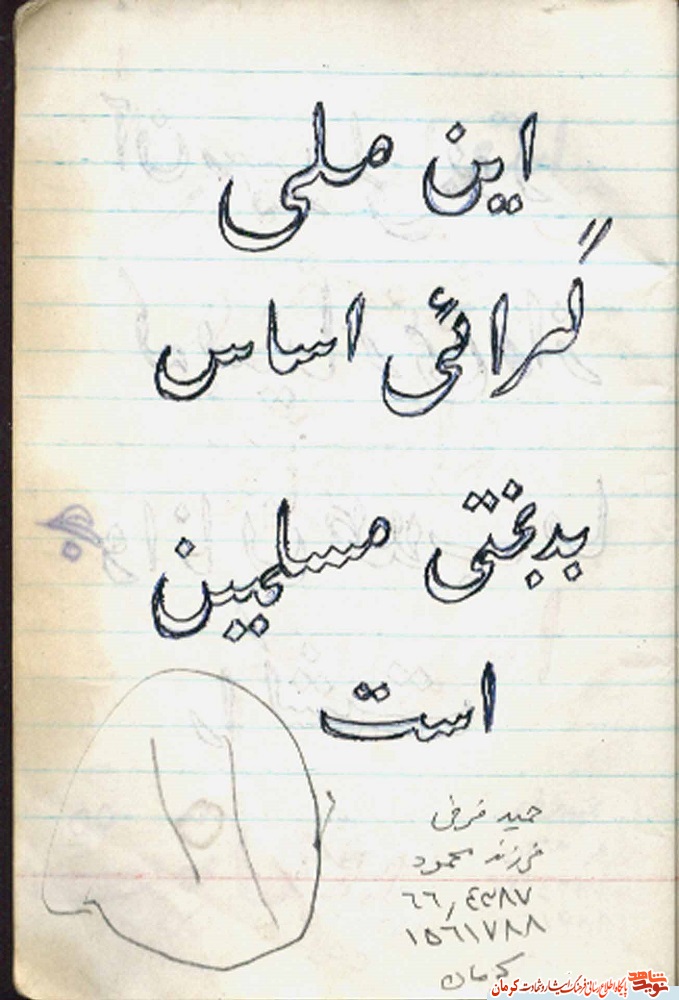 این ملی
گرائی اساس
بدبختی مسلمین
است
حمید فرخی
فرزند محمود
کرمان
نوید شاهد
پایگاه اطلاع رسانی فرهنگ ایثار و شهادت کرمان